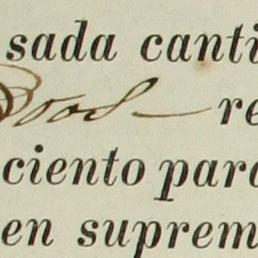 sada canti
re
ciento para
en suprem